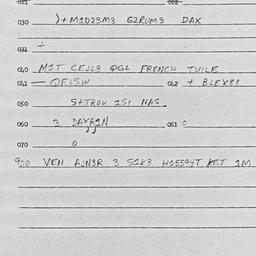 021 022
030 )+M1D23M3 G2RUM3 DAX
031 ÷
040 M1T CEJL3 QGL FRENCH TUILE
041 — QFLSW 042 + BLEX88
050 S+TROW 1S1 NAS.
060 3 DAXR1N 061 0
070 0
900 VEN AJN3R 3 S1K3 HOSS94T KET 1M